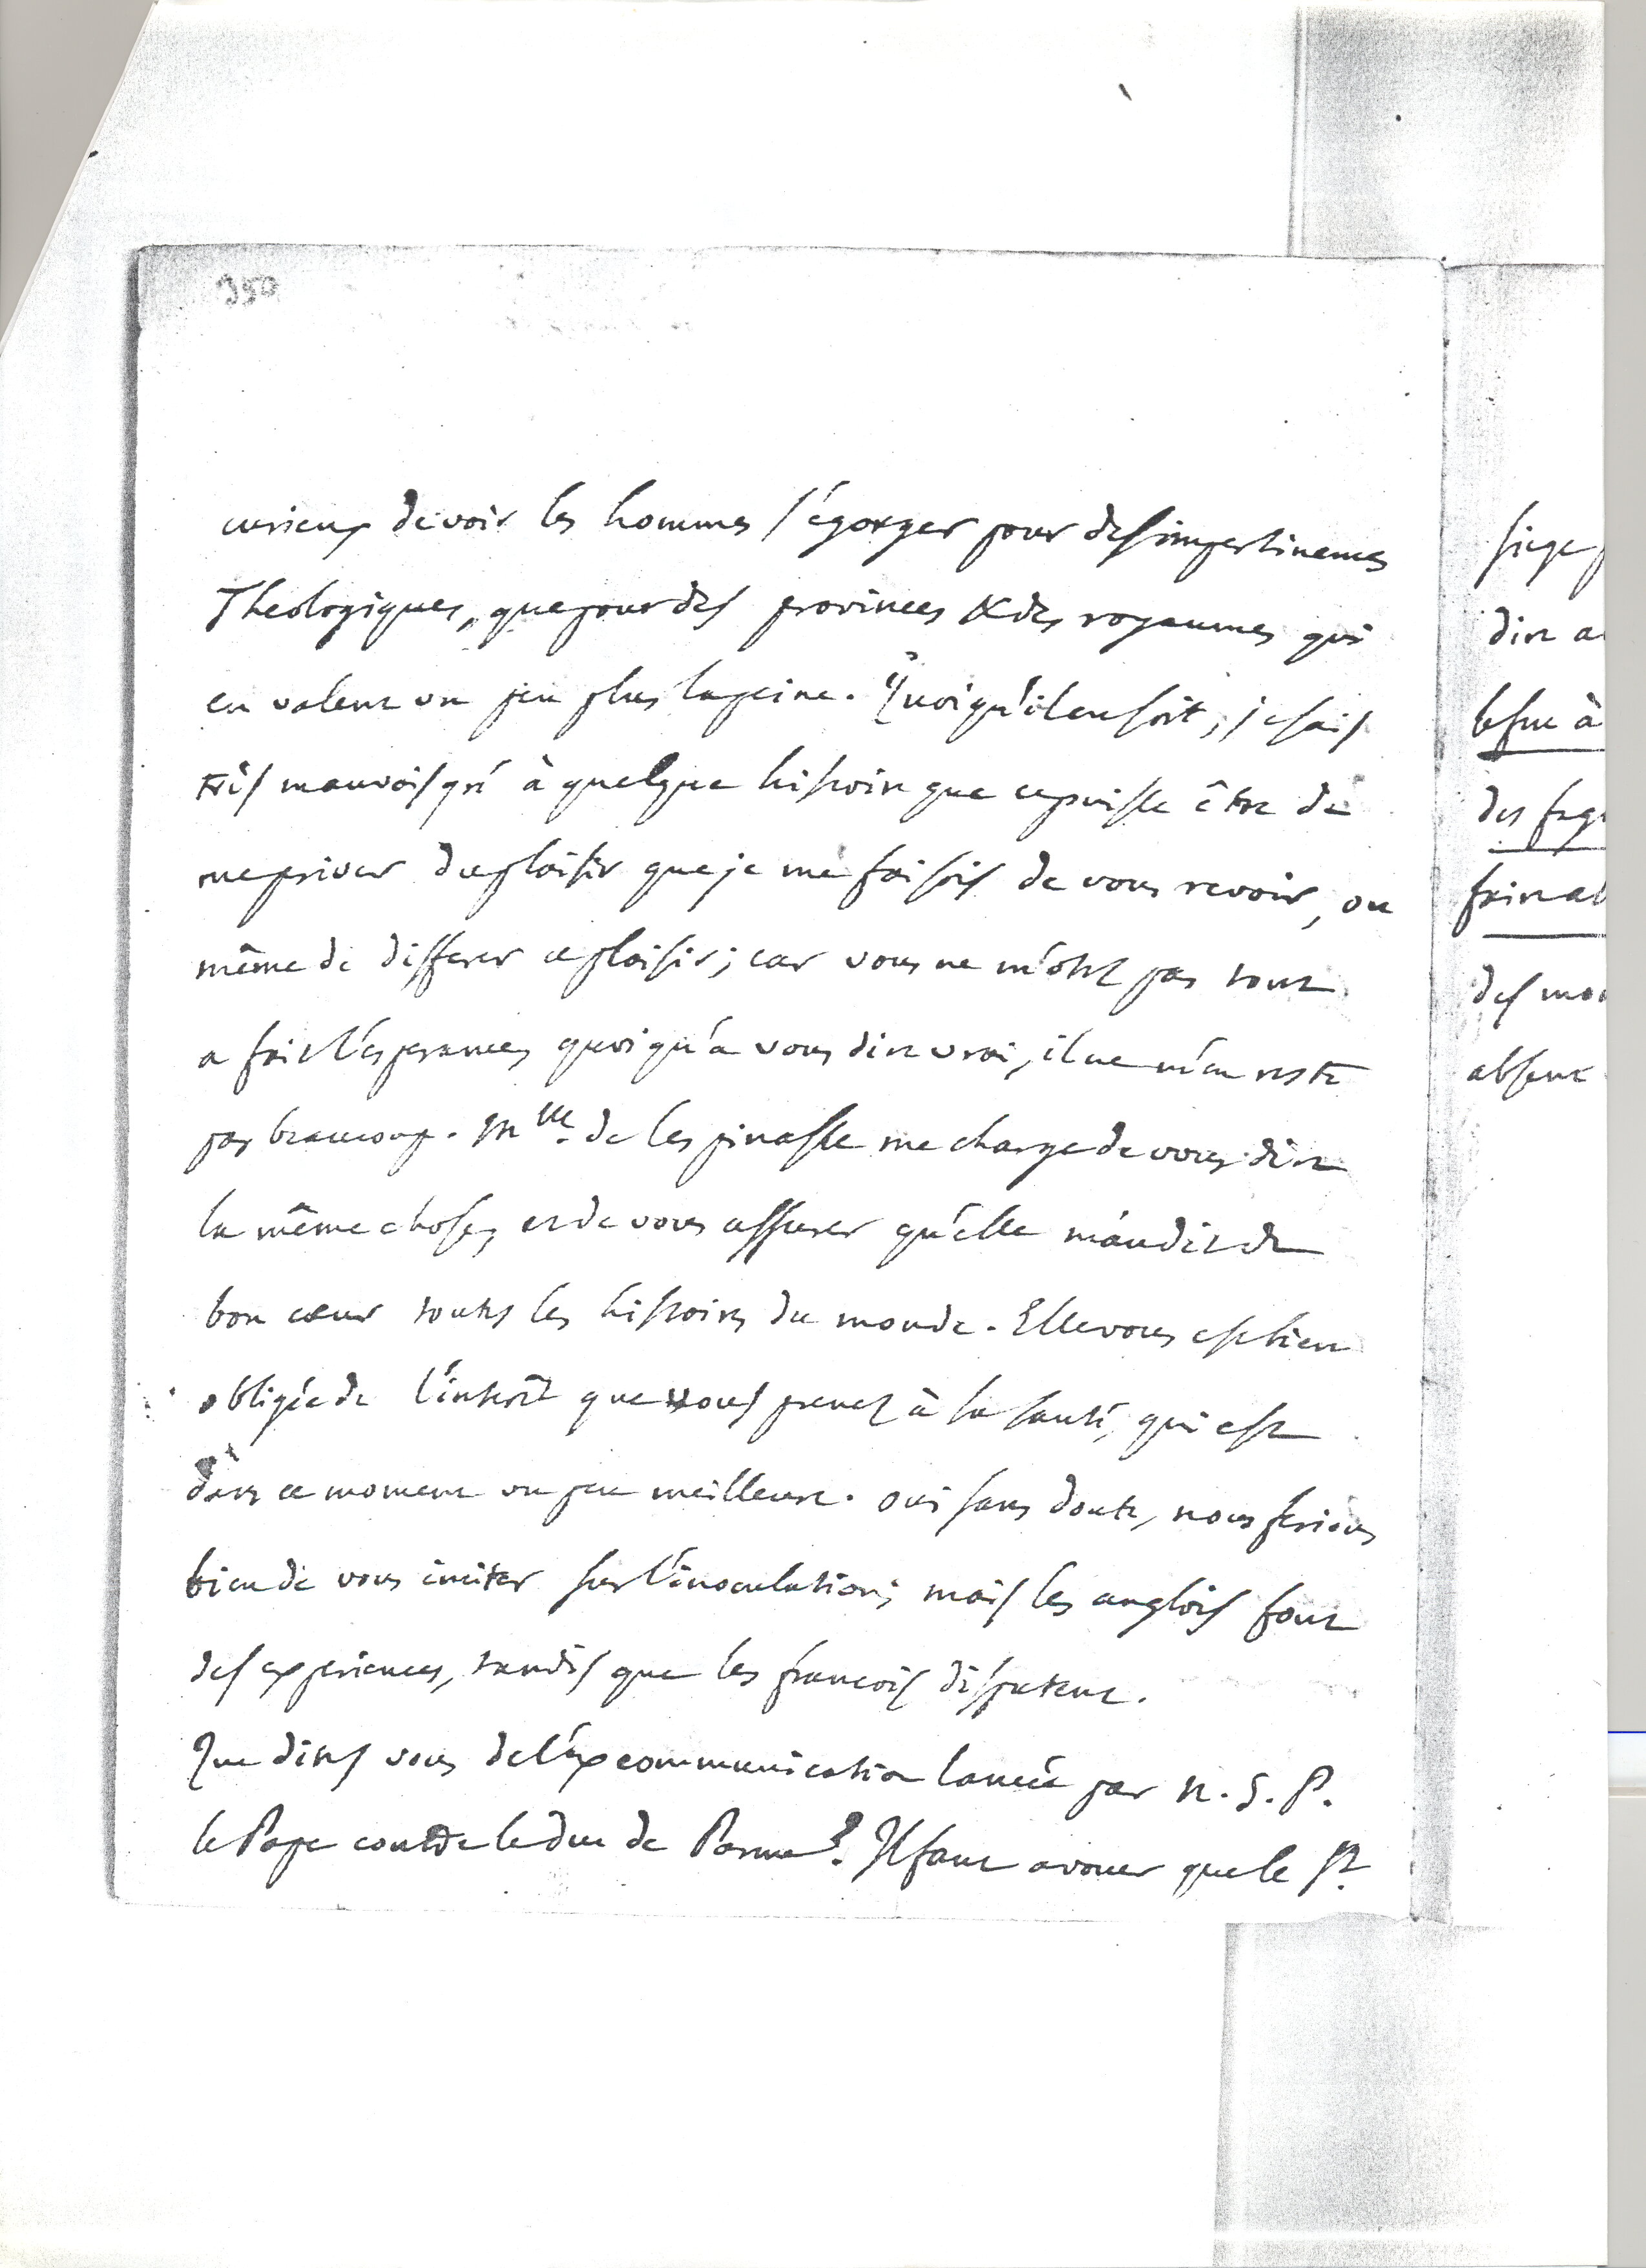 350
curieux de voir les hommes s'égorger pour des impertinences
Theologiques, que pour des provinces & des royaumes qui
en valent un peu plus la peine. Quoiqu'il en soit, je sais
très mauvais gré à quelque histoire que ce puisse être de
me priver du plaisir que je me faisois de vous revoir, ou
même de differer ce plaisir; car vous ne m'ôtez pas tout
a fait l'esperance, quoiqu'a vous dire vrai, il ne m'en reste
pas beaucoup. Mlle. de lespinasse me charge de vous dire
la même chose, et de vous assurer qu'elle maudit de
bon cœur toutes les histoires du monde. Elle vous est bien
obligée de l'interêt que vous prenez à sa santé, qui est
dans ce moment un peu meilleure. oui sans doute, nous ferions
bien de vous imiter sur l'inoculation; mais les anglois font
des experiences, tandis que les francois disputent.
Que dites vous de l'excommunication lancée par N. S. P.
le Pape contre le duc de Parme? Il faut avouer que le St.
siege
dire a
le fue à
des
faire al
des mo
absent